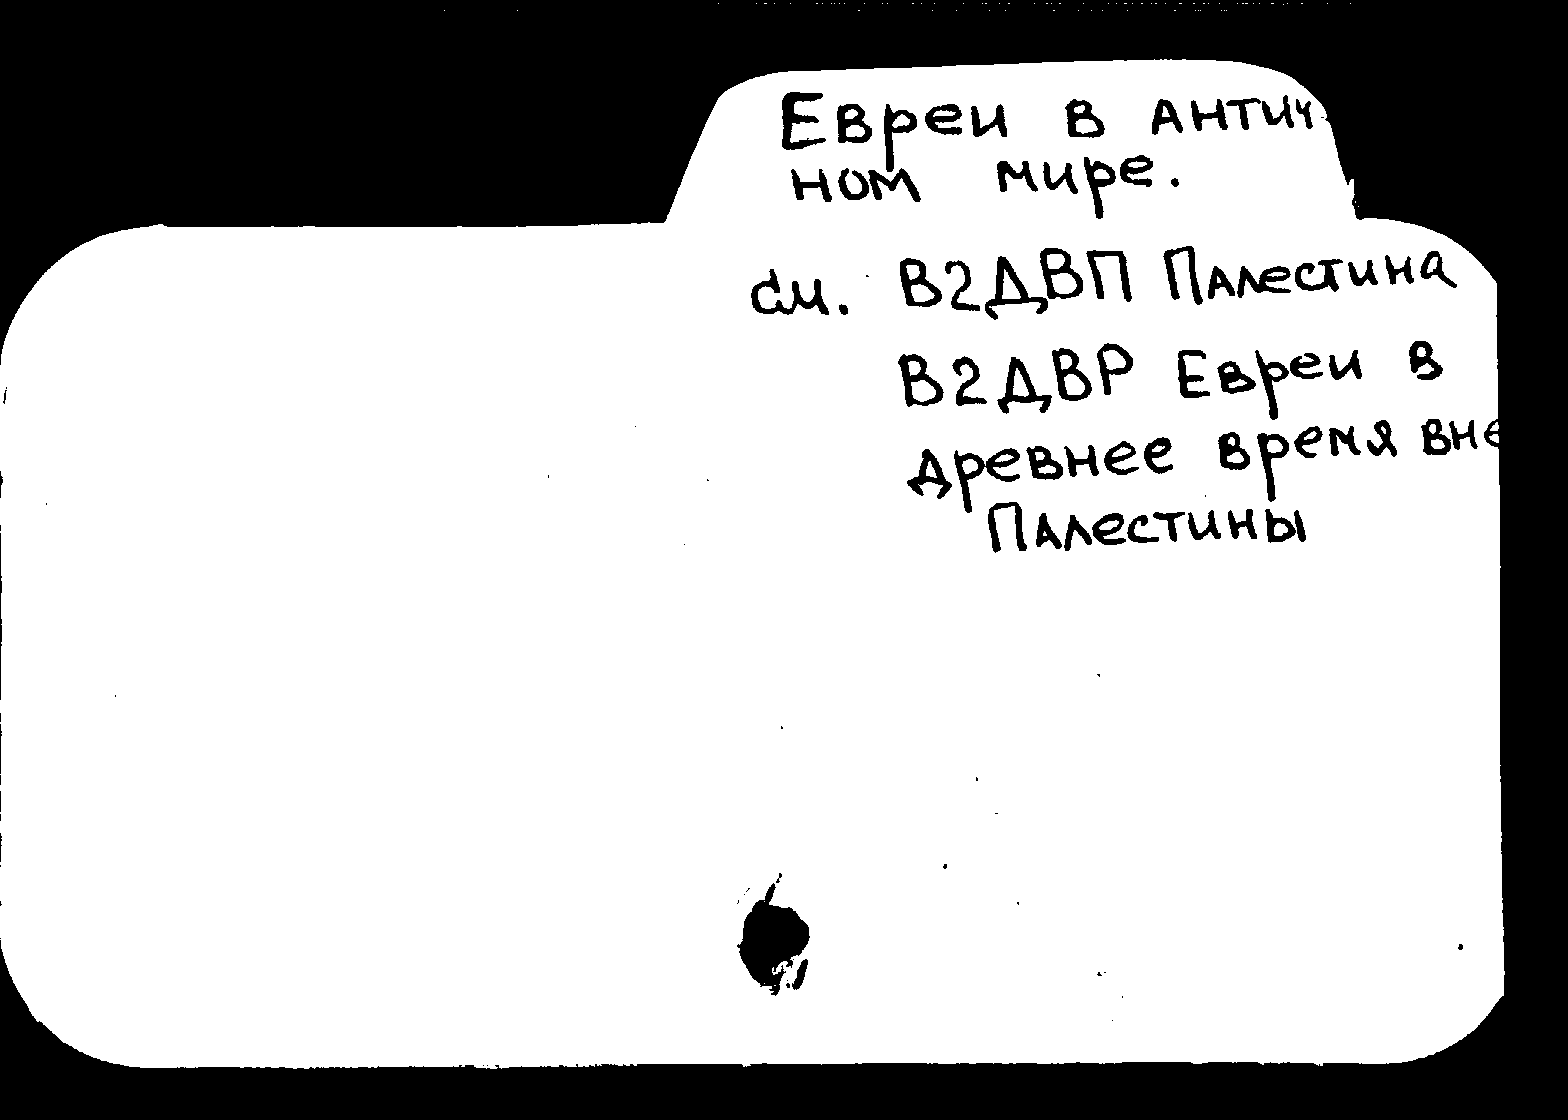 Евреи в антич
ном мире.
см. В2ДВП Палестина
В2ДВР Евреи в
древнее время вне
Палестины